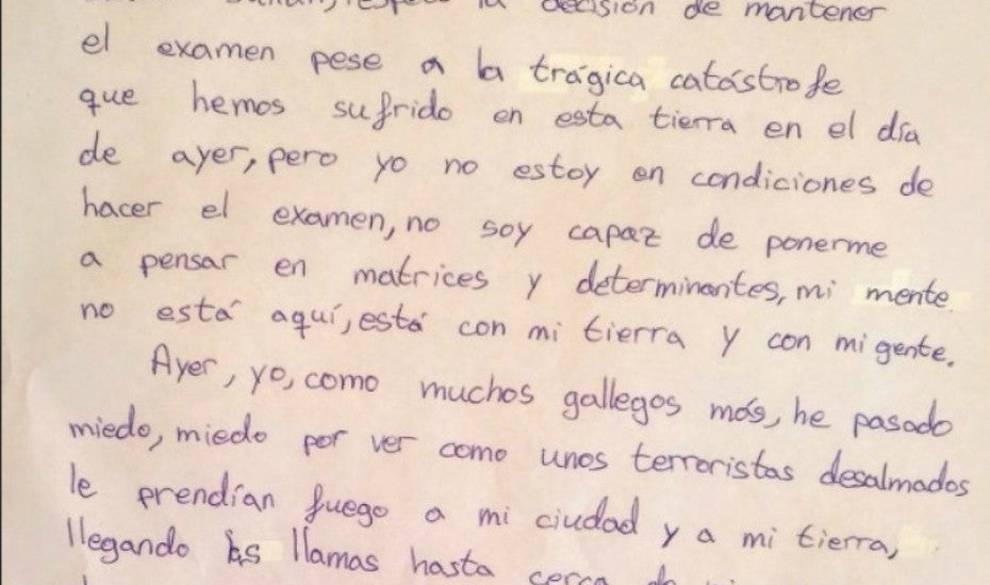 la decisión de mantener
el examen pese a la trágica catástrofe
que hemos sufrido en esta tierra en el día
de ayer, pero yo no estoy en condiciones de
hacer el examen, no soy capaz de ponerme
a pensar en matrices y determinantes, mi mente
no está aquí, está con mi tierra y con mi gente.
Ayer, yo, como muchos gallegos más, he pasado
miedo, miedo por ver como unos terroristas desalmados
le prendían fuego a mi ciudad y a mi tierra,
llegando las llamas hasta cerca